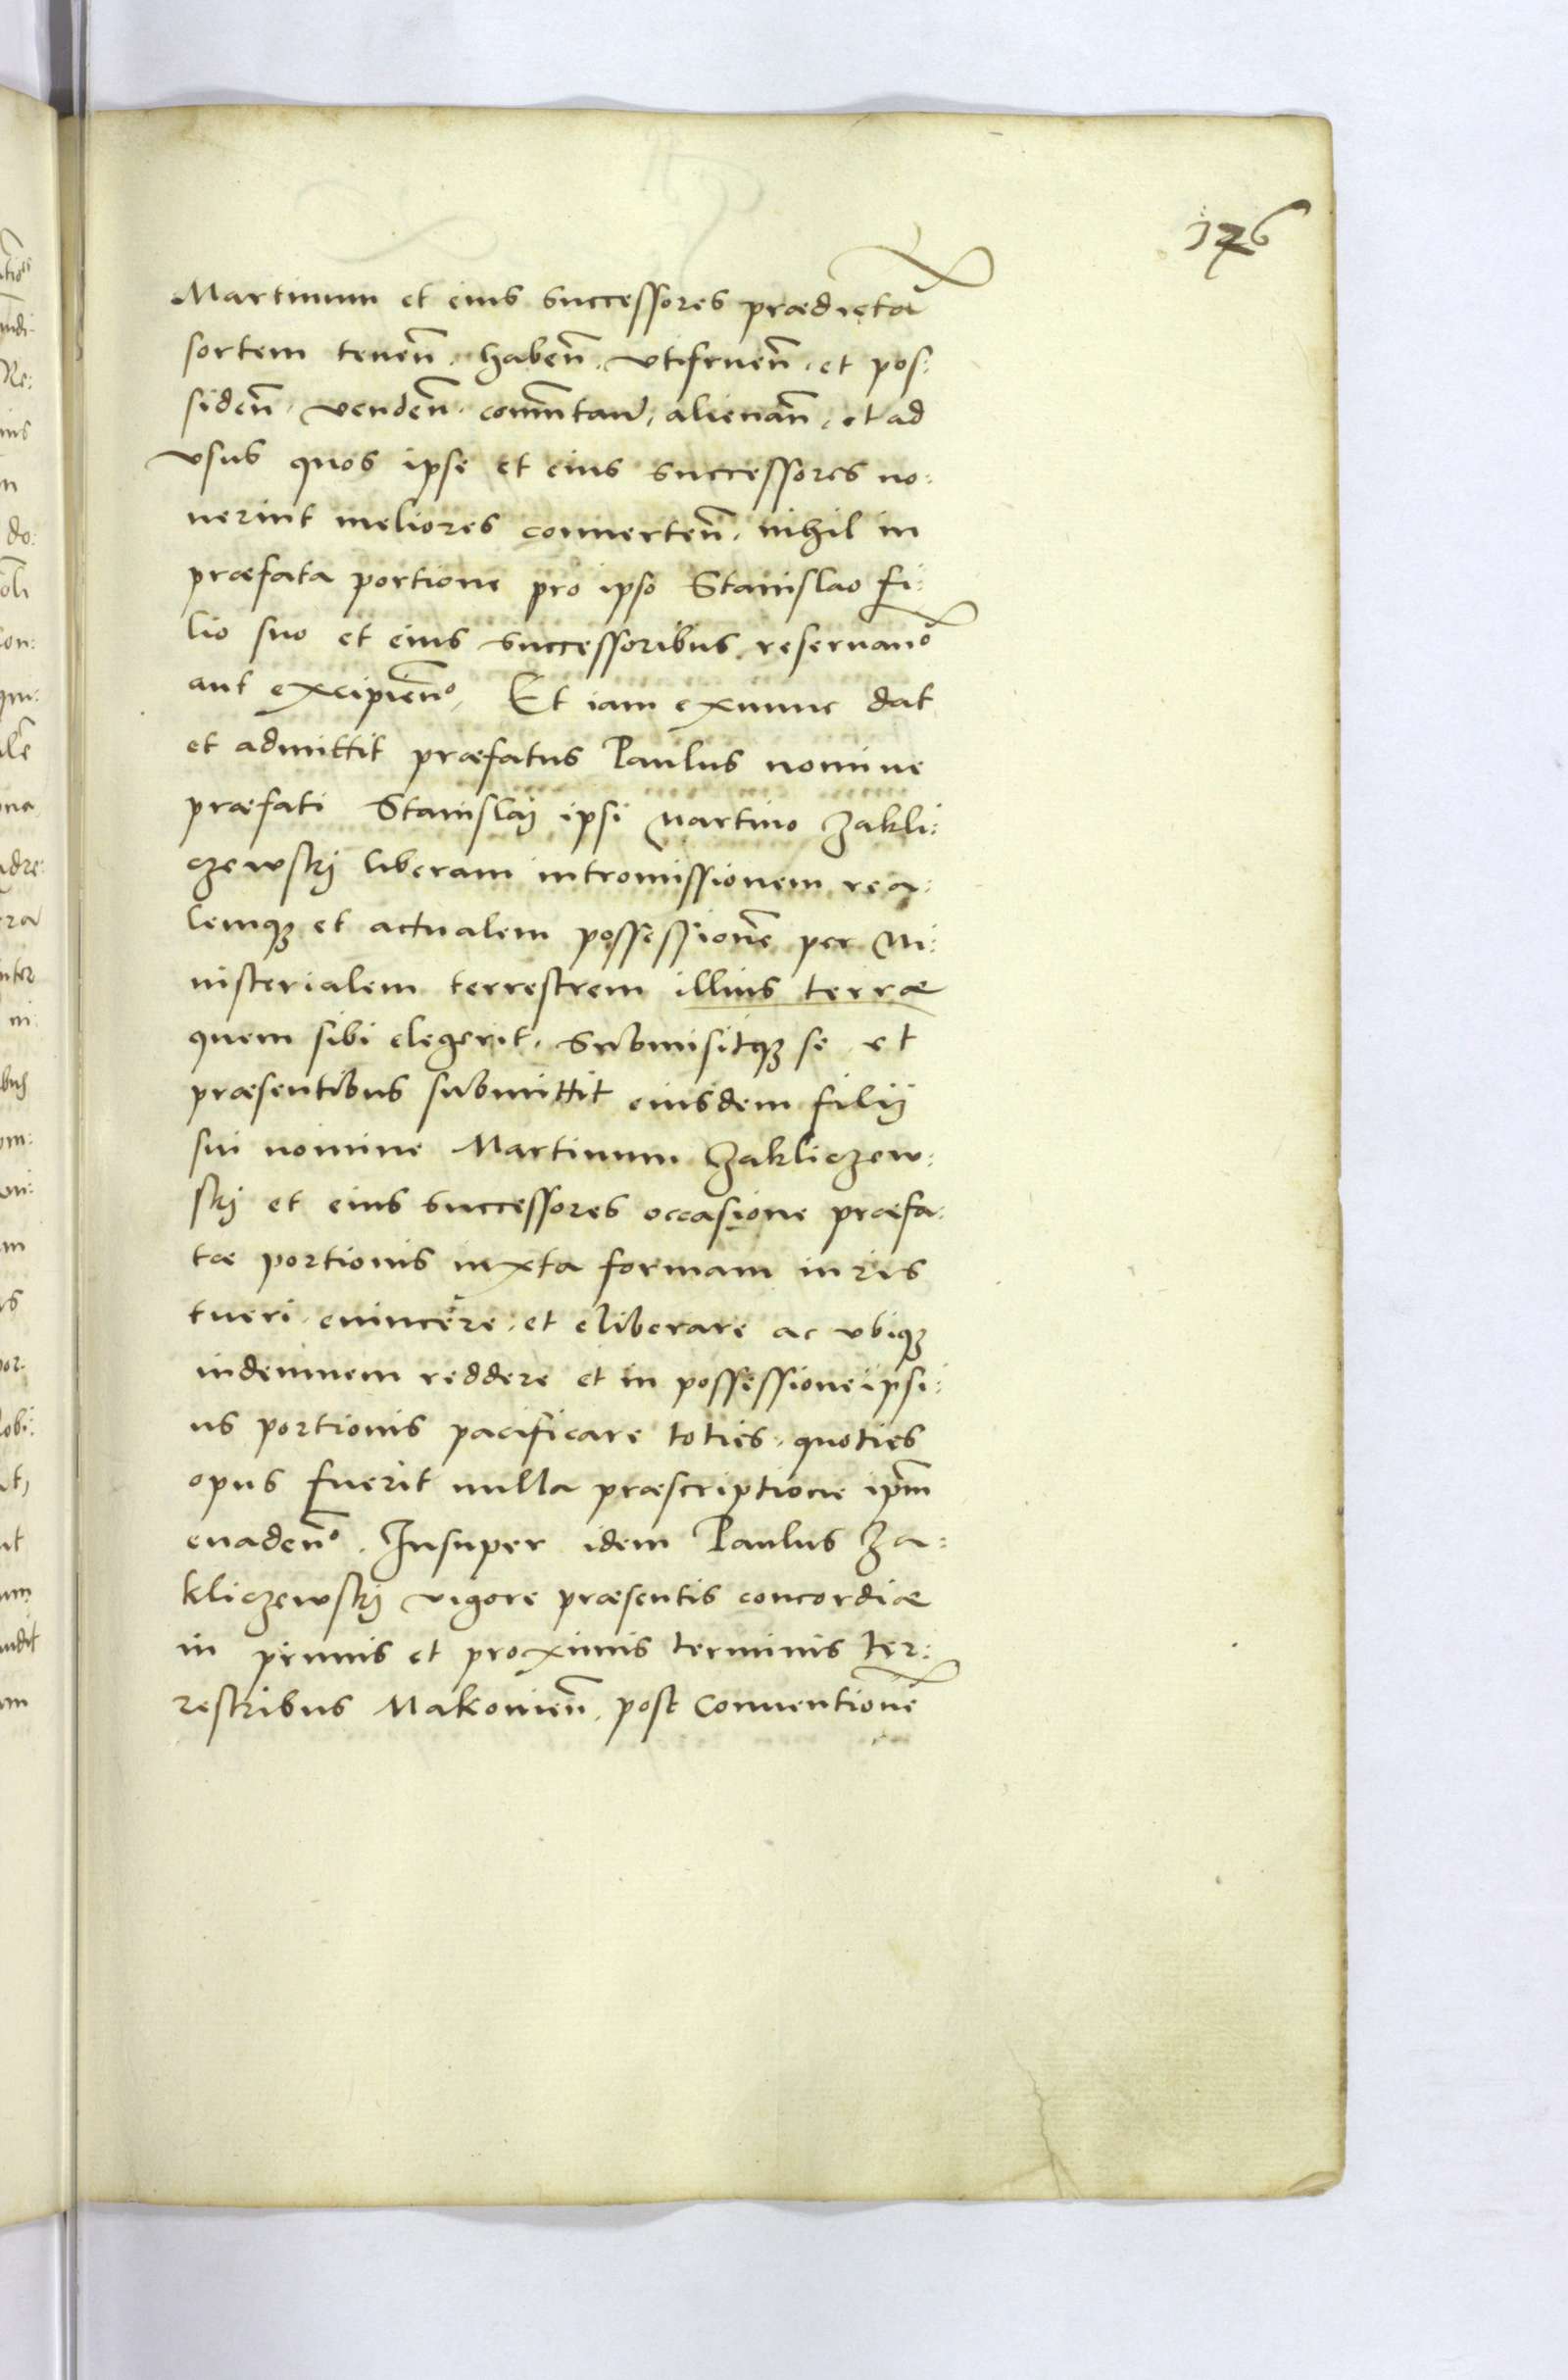 176
Martinum et eius successores prædictā
sortem tenen̄. haben̄. vtifruen̄. et pos:
siden̄. venden̄. com̄utan̄. alienan̄. et ad
vsus quos ipse et eius successores no:
uerint meliores conuerten̄. nihil in
præfata portione pro ipso Stanislao fi:
lio suo et eius successoribus reseruan̄o
aut excipien̄o. Et iam exnunc dat
et admittit præfatus Paulus nomine
præfati Stanislaij ipsi Martino Zakli:
czewskij liberam intromissionem rea:
lemq3 et actualem possessionē per Mi:
nisterialem terrestrem illius terræ
quem sibi elegerit. Submisitq3 se et
præsentibus submittit eiusdem filij
sui nomine Martinum Zakliczew:
skij et eius successores occasione præfa:
tæ portionis iuxta formam iuris
tueri. euincere. et eliberare ac vbiq3
indemnem reddere et in possessione ipsi:
us portionis pacificare toties. quoties
opus fuerit nulla præscriptione ip̄m
euaden̄o. Insuper idem Paulus Za:
kliczewskij vigore præsentis concordiæ
in primis et proximis terminis ter:
restribus Makouien̄. post Conuentionē